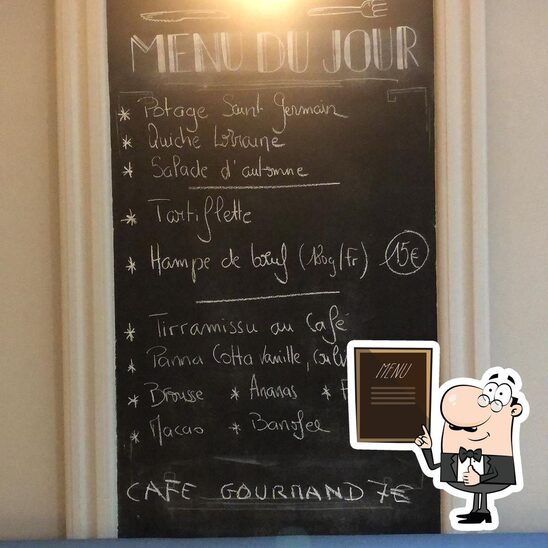 MENU DU JOUR
* Potage Saint Germain
* Quiche Lorraine
* Salade d'automne
* Tartiflette
* Hampe de bœuf (180g/Fr) 15€
* Tirramissu au Café
* Panna Cotta Vanille,
* Brousse * Ananas *
* Macao * Banofee
CAFE GOURMAND 7€
MENU